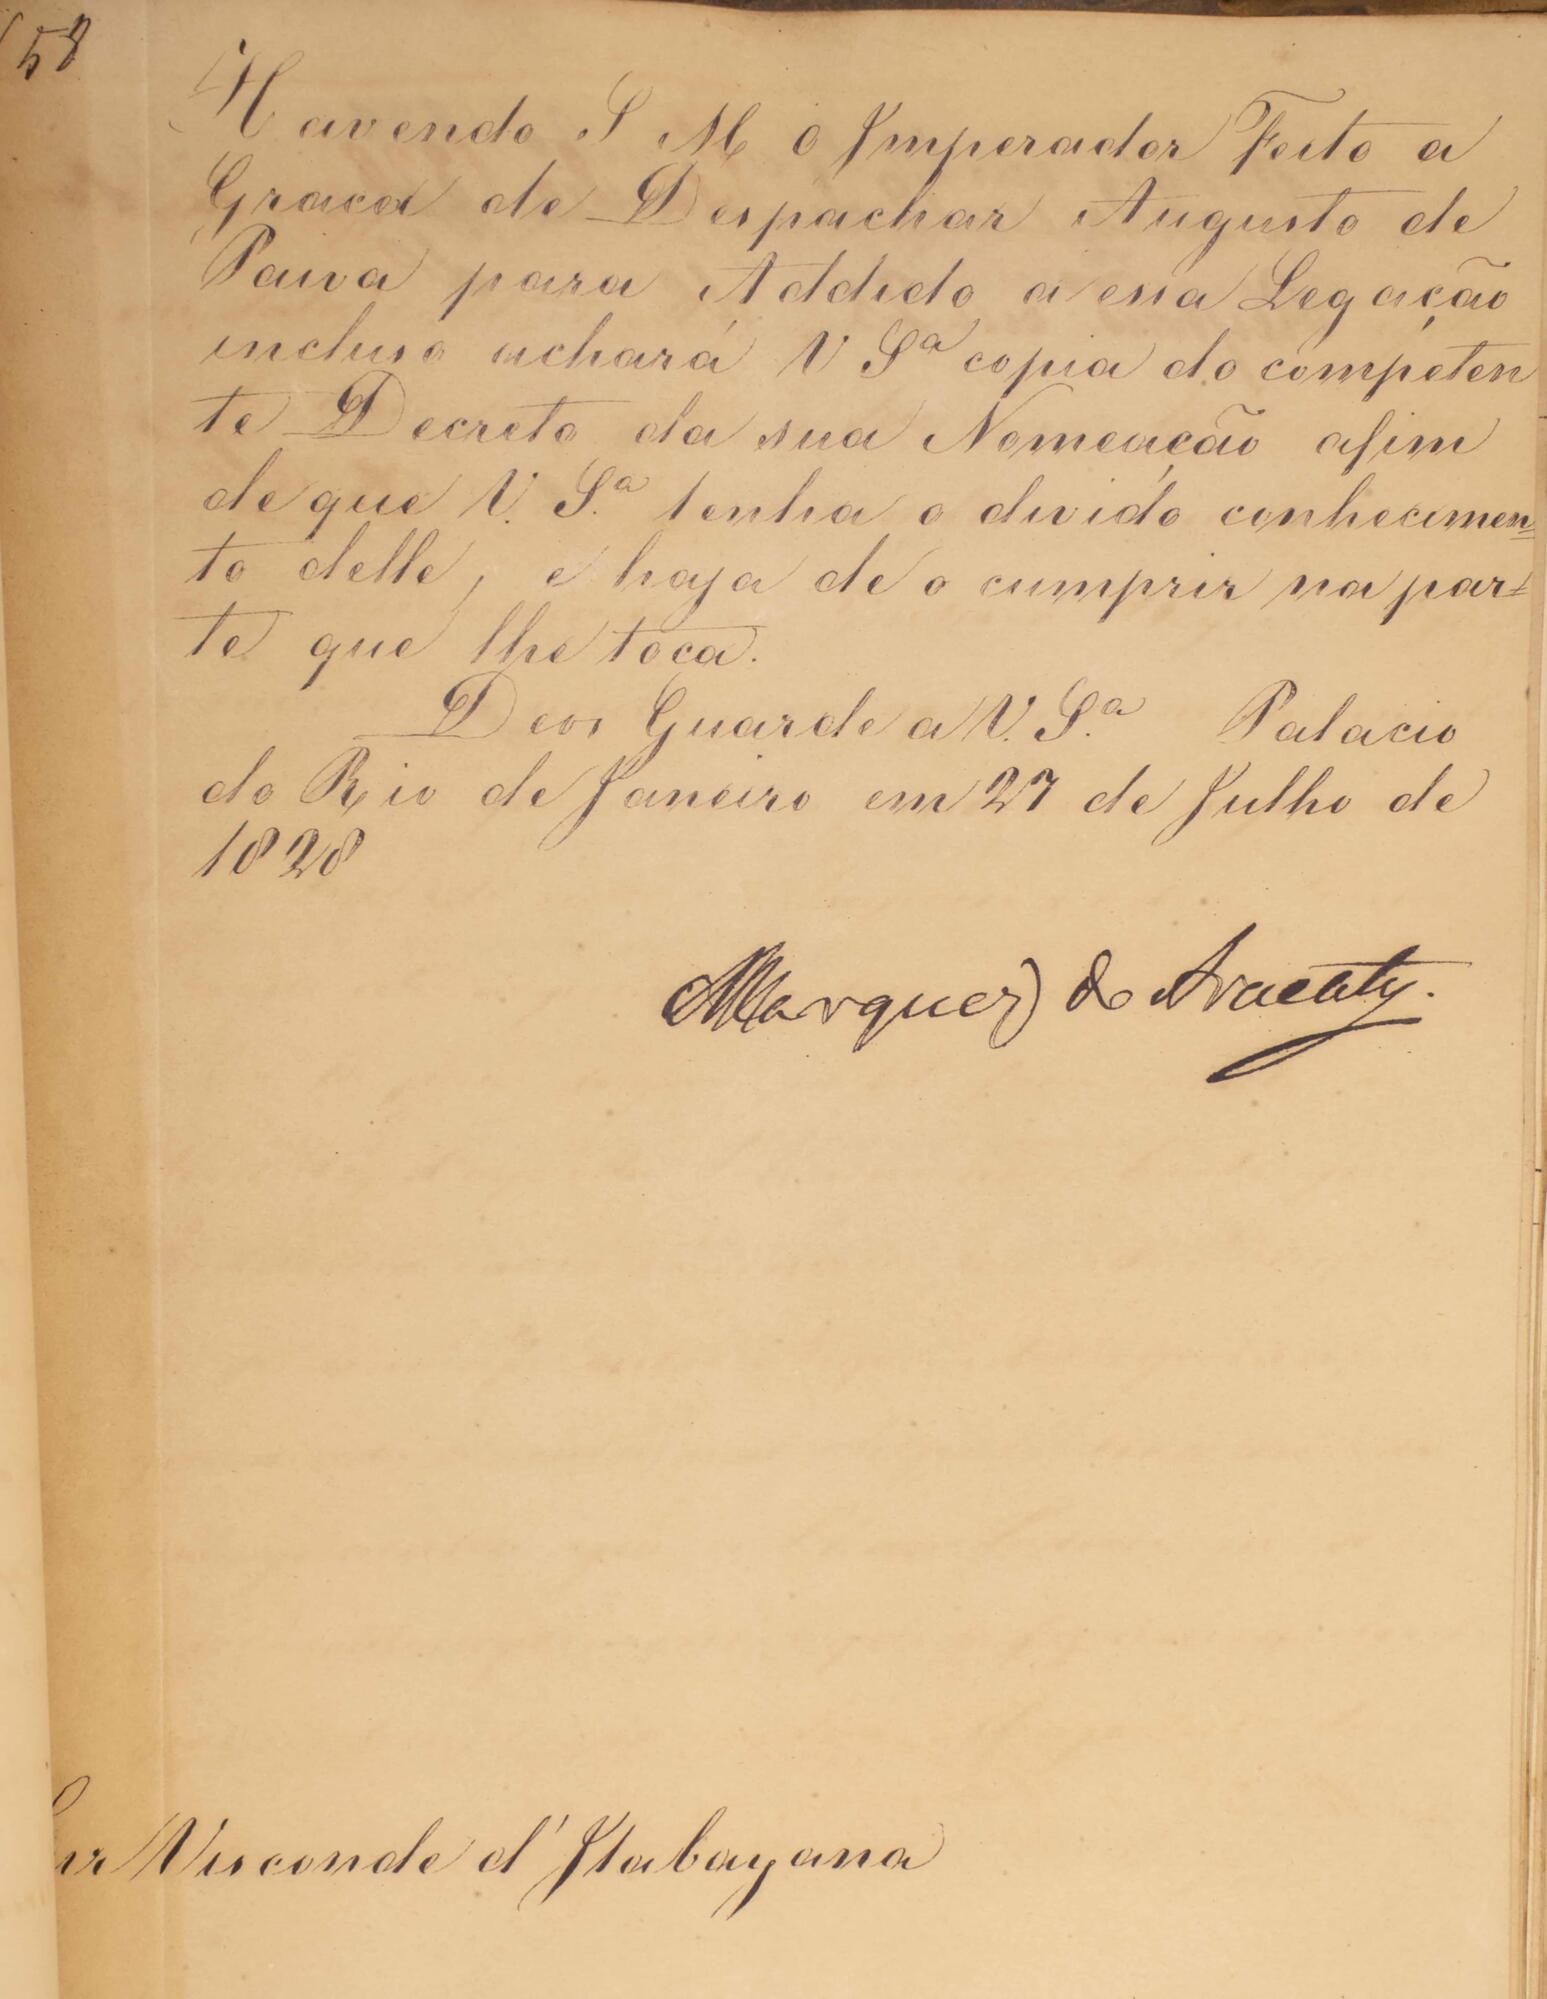 58
Havendo S M O Imperador Feito a
Graca de Despachar Augusto de
Paiva para Addido a essa Legação
incluso achará V Sª copia do competen
te Decreto da sua Nomeação afim
de que V. S.ª tenha o divido conhecimen=
to delle, e haja de o cumprir na par=
te que lhe toca.
Deos Guarde a V. S.ª Palacio
do Rio de Janeiro em 27 de Julho de
1828
Marquez do Aracaty.
Visconde d'Itabayana